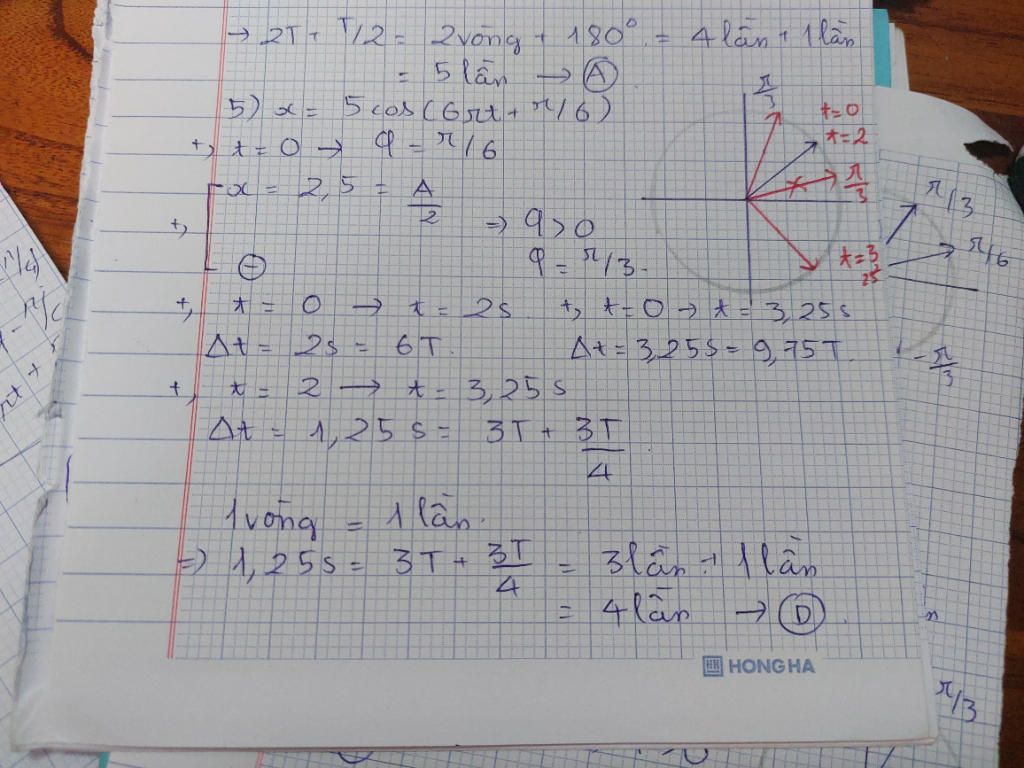 → 2T + T/2 = 2 vòng + 180° = 4 lần + 1 lần
= 5 lần → Ⓐ
5) x = 5 cos(6πt + π/6)
+, t = 0 → φ = π/6
+, x = 2,5 = A/2
⊖
⇒ φ > 0
φ = π/3.
π/3
t=0
t=2
π/3
t=3
25
+, t = 0 → t = 2s. +, t=0 → t = 3,25s
Δt = 2s = 6T. Δt = 3,25s = 9,75T.
+, t = 2 → t = 3,25s
Δt = 1,25s = 3T + 3T/4
1 vòng = 1 lần.
⇒ 1,25s = 3T + 3T/4 = 3 lần + 1 lần
= 4 lần → Ⓓ.
HH HONG HA
π/3
π/6
-π/3
π/3